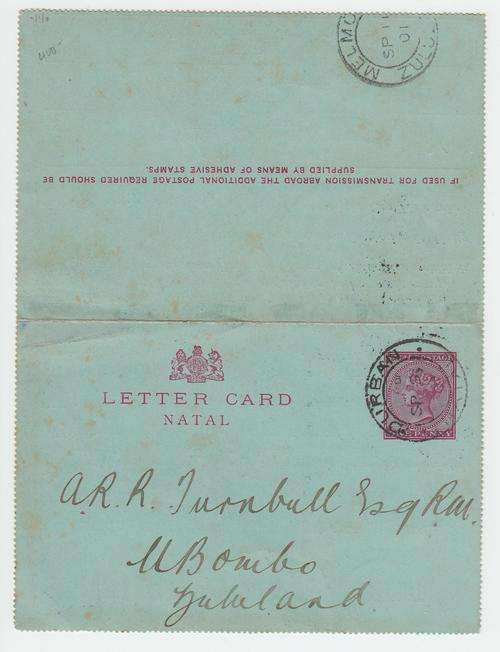 MELMO
SP 11
01
IF USED FOR TRANSMISSION ABROAD THE ADDITIONAL POSTAGE REQUIRED SHOULD BE
SUPPLIED BY MEANS OF ADHESIVE STAMPS.
LETTER CARD
NATAL
DURBAN
SP
A.R.R. Turnbull Esq R.M.
UBombo
Zululand